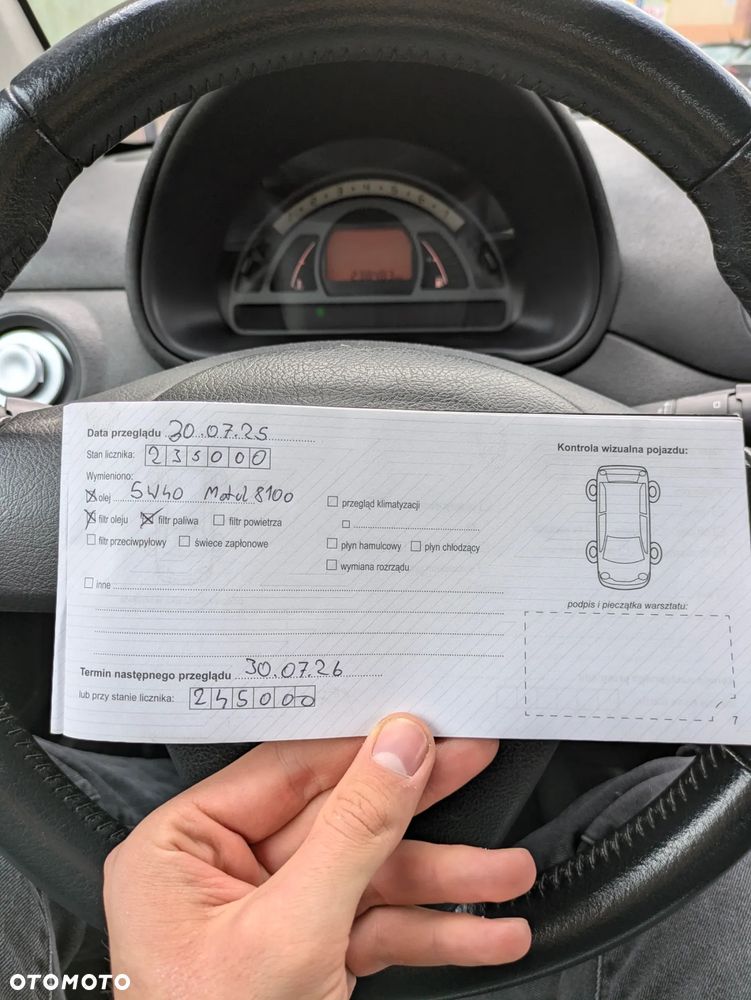 Data przeglądu 30.07.25
Stan licznika: 235000
Wymieniono:
olej 5W40 Motul 8100
przegląd klimatyzacji
filtr oleju filtr paliwa filtr powietrza
filtr przeciwpyłowy świece zapłonowe
płyn hamulcowy płyn chłodzący
wymiana rozrządu
inne
Termin następnego przeglądu 30.07.26
lub przy stanie licznika: 245000
Kontrola wizualna pojazdu:
podpis i pieczątka warsztatu:
7
OTOMOTO